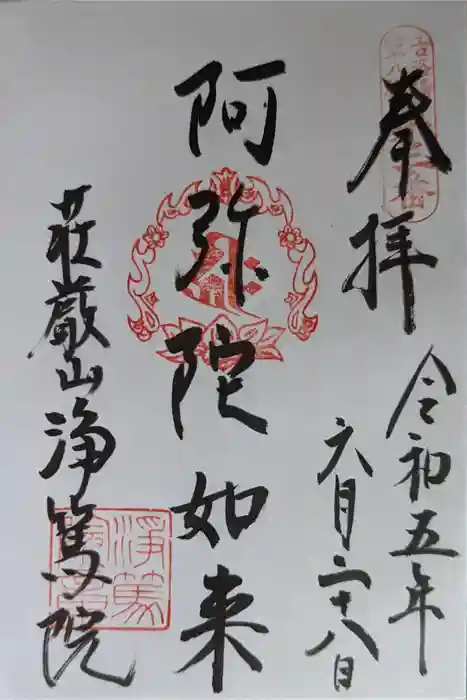 奉拝
令和五年
六月二十八日
阿弥陀如来
荘厳山浄篤院